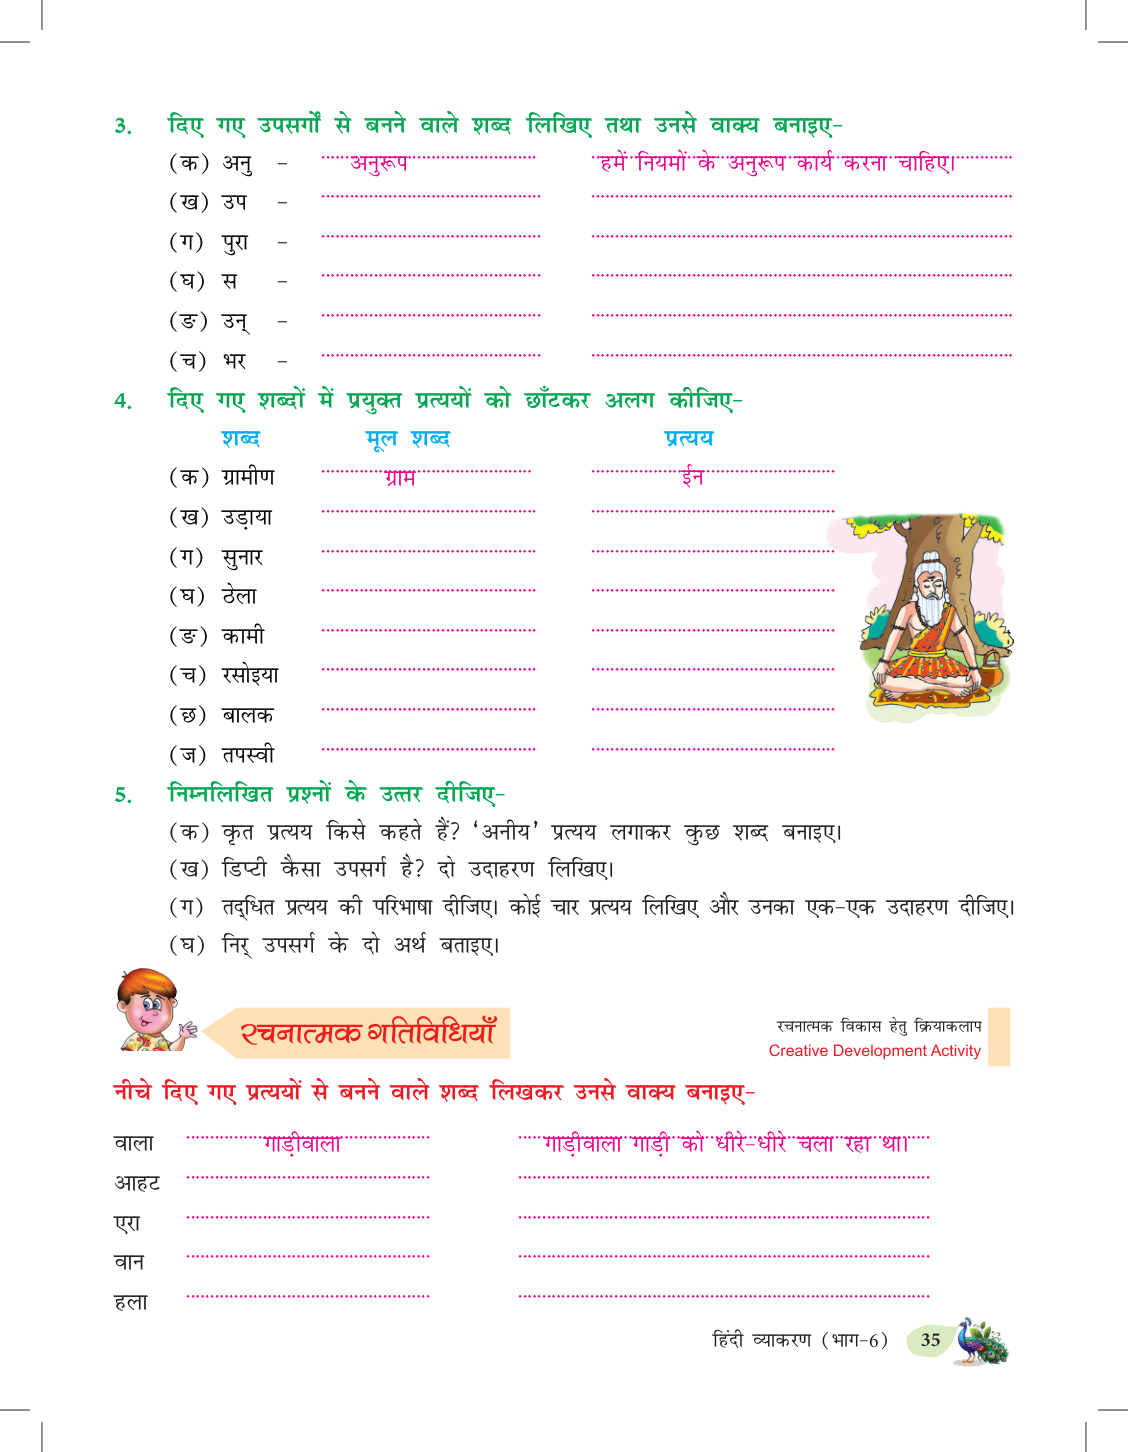 3. दिए गए उपसर्गों से बनने वाले शब्द लिखिए तथा उनसे वाक्य बनाइए-
(क) अनु - अनुरूप हमें नियमों के अनुरूप कार्य करना चाहिए।
(ख) उप -
(ग) पुरा -
(घ) स -
(ङ) उन् -
(च) भर -
4. दिए गए शब्दों में प्रयुक्त प्रत्ययों को छाँटकर अलग कीजिए-
शब्द मूल शब्द प्रत्यय
(क) ग्रामीण ग्राम ईन
(ख) उड़ाया
(ग) सुनार
(घ) ठेला
(ङ) कामी
(च) रसोइया
(छ) बालक
(ज) तपस्वी
5. निम्नलिखित प्रश्नों के उत्तर दीजिए-
(क) कृत प्रत्यय किसे कहते हैं? ‘अनीय’ प्रत्यय लगाकर कुछ शब्द बनाइए।
(ख) डिप्टी कैसा उपसर्ग है? दो उदाहरण लिखिए।
(ग) तद्धित प्रत्यय की परिभाषा दीजिए। कोई चार प्रत्यय लिखिए और उनका एक-एक उदाहरण दीजिए।
(घ) निर् उपसर्ग के दो अर्थ बताइए।
रचनात्मक गतिविधियाँ
रचनात्मक विकास हेतु क्रियाकलाप
Creative Development Activity
नीचे दिए गए प्रत्ययों से बनने वाले शब्द लिखकर उनसे वाक्य बनाइए-
वाला गाड़ीवाला गाड़ीवाला गाड़ी को धीरे-धीरे चला रहा था।
आहट
एरा
वान
हला
हिंदी व्याकरण (भाग-6) 35